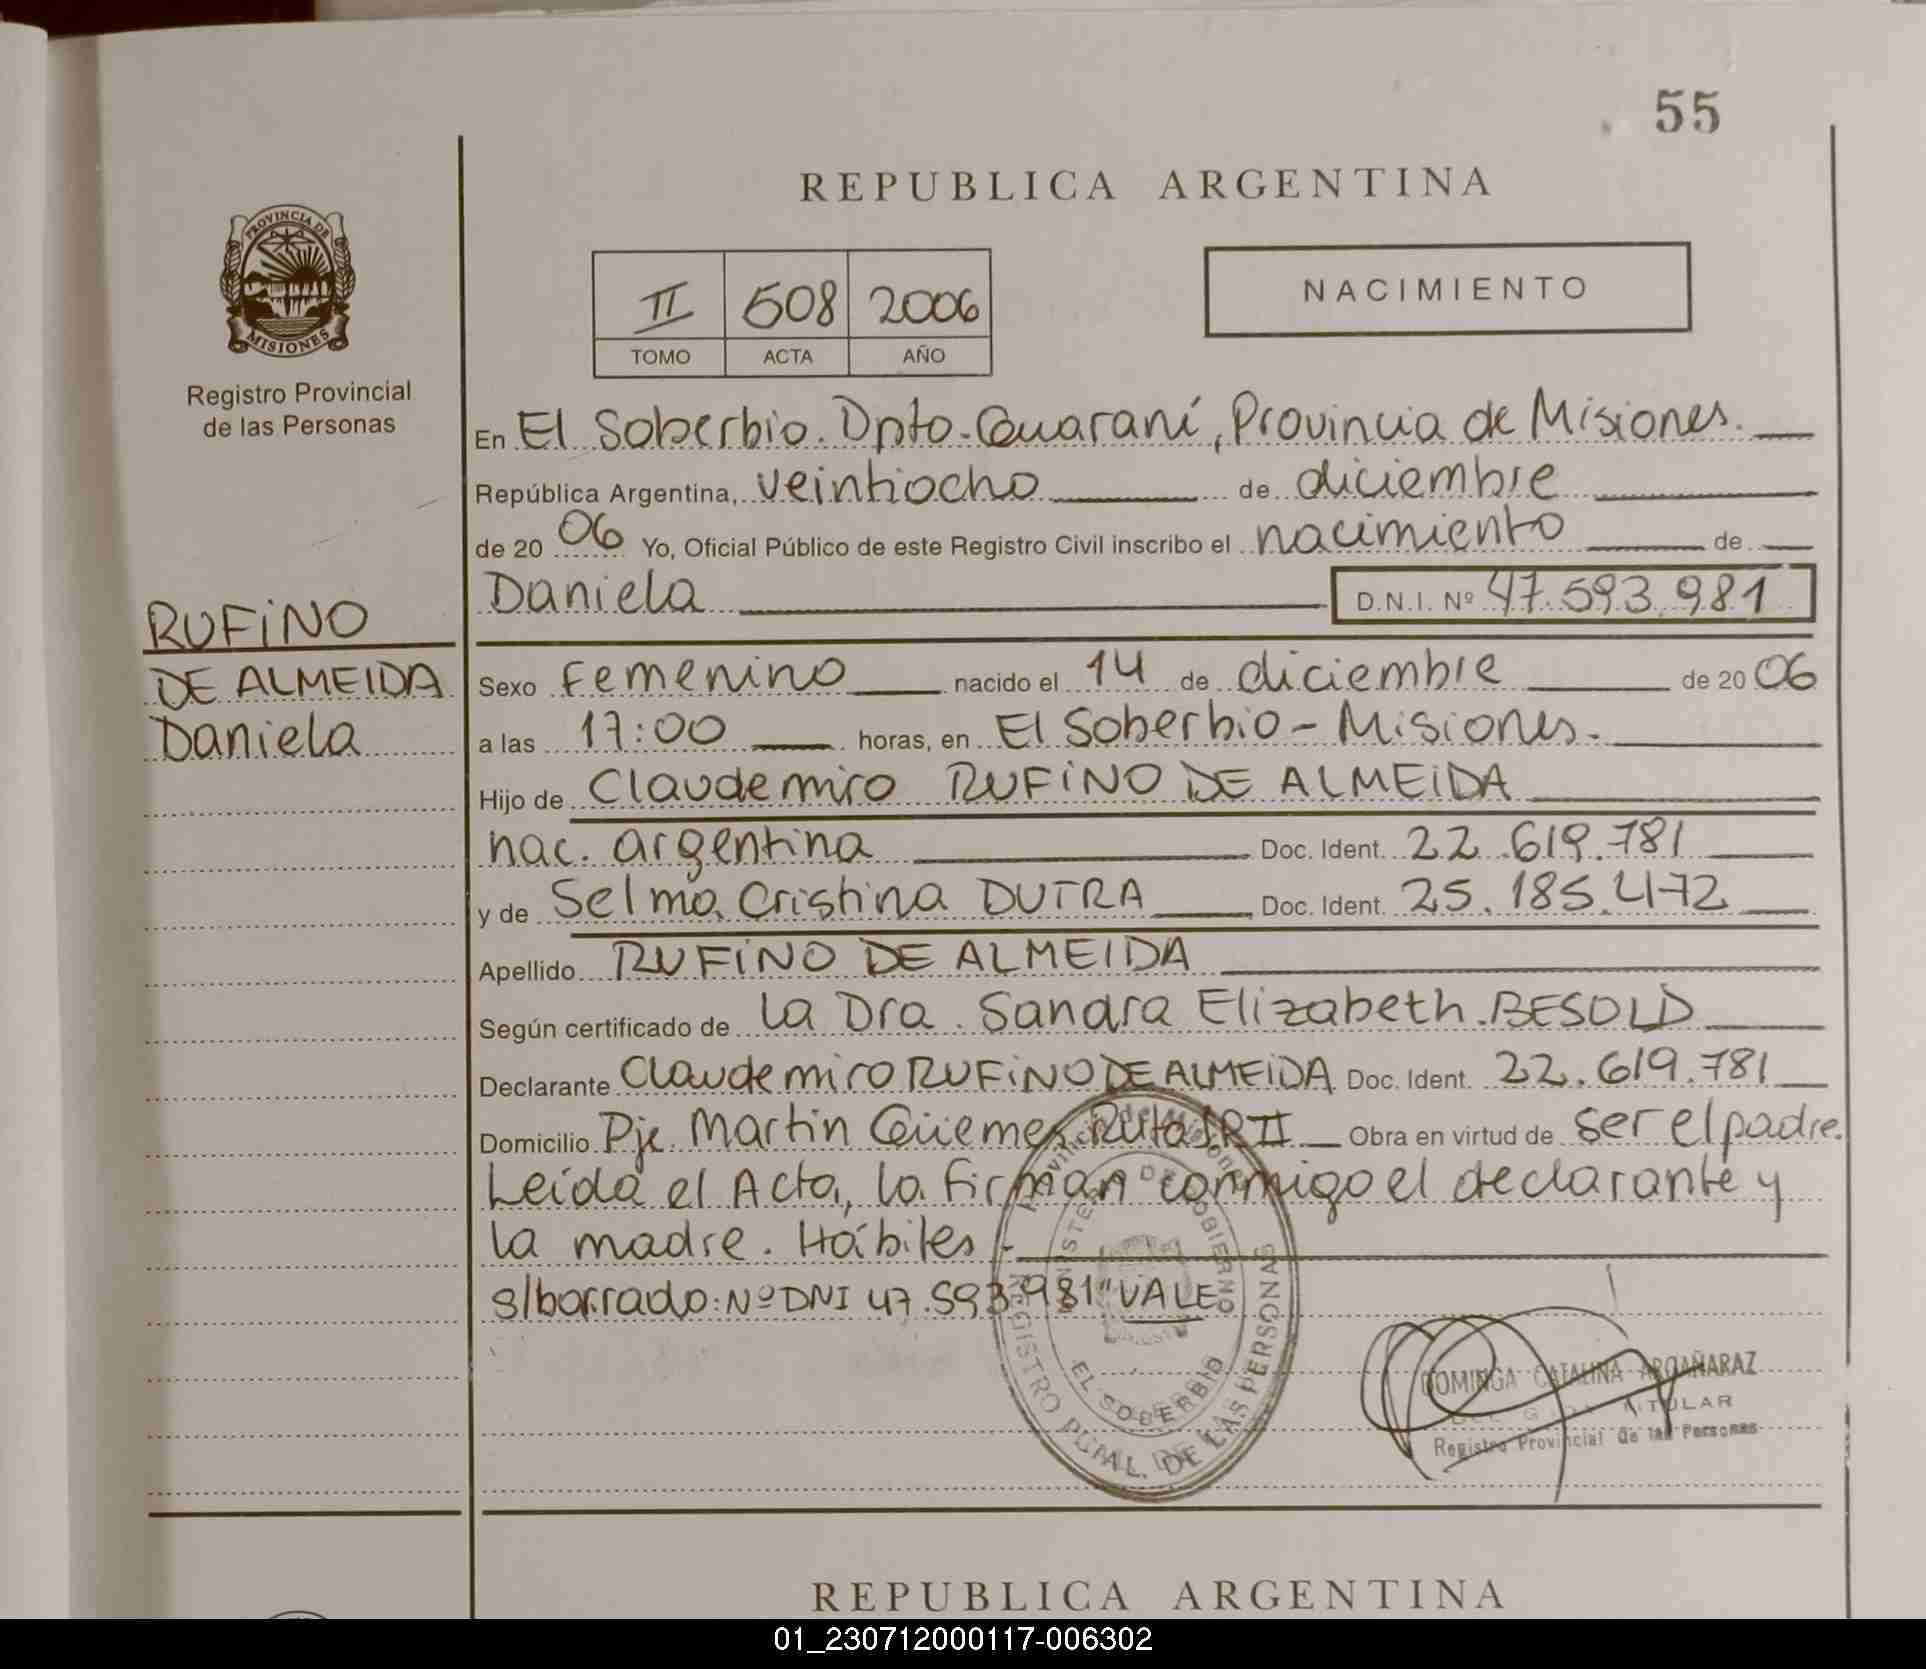 55
REPUBLICA ARGENTINA
PROVINCIA DE
MISIONES
Registro Provincial
de las Personas
II 508 2006
TOMO ACTA AÑO
NACIMIENTO
En El Soberbio. Dpto. Guaraní, Provincia de Misiones.
República Argentina, veintiocho de diciembre
de 20 06 Yo, Oficial Público de este Registro Civil inscribo el nacimiento de
Daniela D.N.I. Nº 47.593.981
RUFINO
DE ALMEIDA
Daniela
Sexo Femenino nacido el 14 de diciembre de 20 06
a las 17:00 horas, en El Soberbio - Misiones.
Hijo de Claudemiro RUFINO DE ALMEIDA
nac. argentina Doc. Ident. 22.619.781
y de Selma Cristina DUTRA Doc. Ident. 25.185.472
Apellido RUFINO DE ALMEIDA
Según certificado de la Dra. Sandra Elizabeth BESOLD
Declarante Claudemiro RUFINO DE ALMEIDA Doc. Ident. 22.619.781
Domicilio Pje. Martin Güemes Ruta P II Obra en virtud de ser el padre.
Leída el Acta, la firman conmigo el declarante y
la madre. Hábiles.
s/borrado: Nº DNI 47.593.981" VALE
Provincia de Misiones
MINISTERIO DE GOBIERNO
EL SOBERBIO
REGISTRO PCIAL. DE LAS PERSONAS
DOMINGA CATALINA ARGAÑARAZ
DELEGADA TITULAR
Registro Provincial de las Personas
REPUBLICA ARGENTINA
01_230712000117-006302